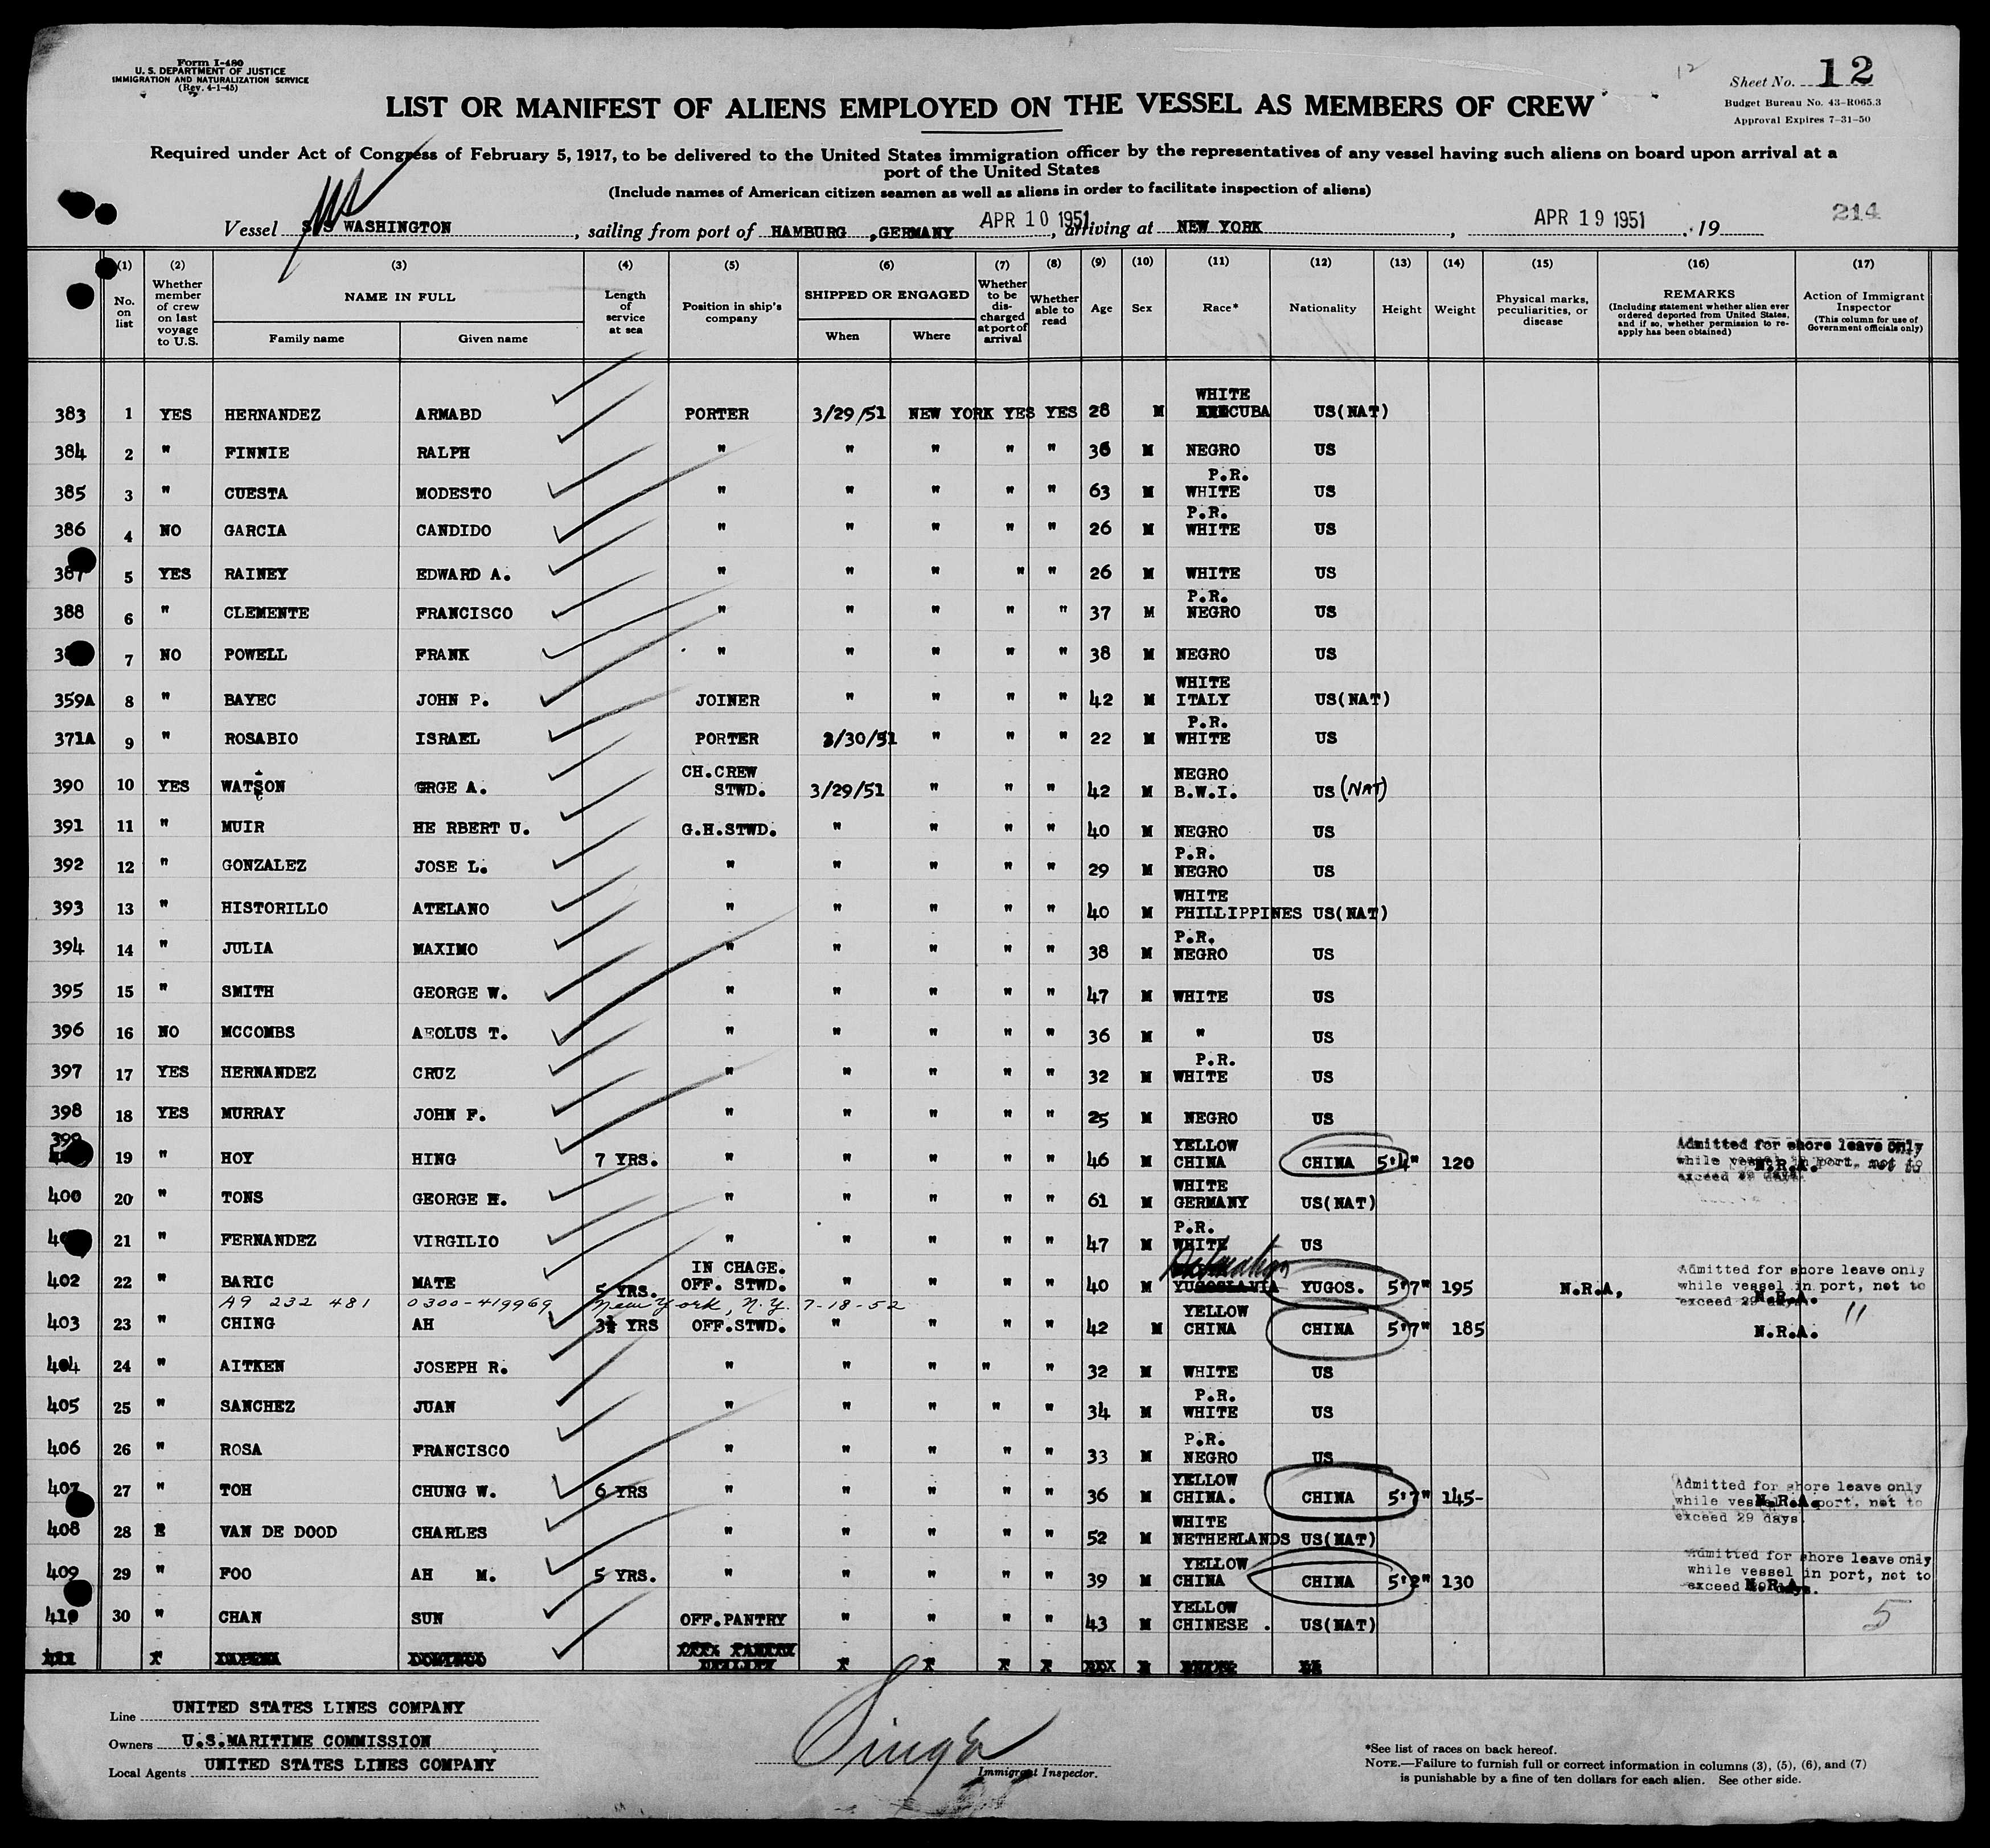 Form I-480
U. S. DEPARTMENT OF JUSTICE
IMMIGRATION AND NATURALIZATION SERVICE
(Rev. 4-1-45)
12
Sheet No. 12
Budget Bureau No. 43-R065.3
Approval Expires 7-31-50
LIST OR MANIFEST OF ALIENS EMPLOYED ON THE VESSEL AS MEMBERS OF CREW
Required under Act of Congress of February 5, 1917, to be delivered to the United States immigration officer by the representatives of any vessel having such aliens on board upon arrival at a
port of the United States
(Include names of American citizen seamen as well as aliens in order to facilitate inspection of aliens)
Vessel SS WASHINGTON, sailing from port of HAMBURG ,GERMANY APR 10 1951, arriving at NEW YORK, APR 19 1951, 19
214
(1) (2) (3) (4) (5) (6) (7) (8) (9) (10) (11) (12) (13) (14) (15) (16) (17)
No. on list
Whether member of crew on last voyage to U.S.
NAME IN FULL
Family name
Given name
Length of service at sea
Position in ship's company
SHIPPED OR ENGAGED
When
Where
Whether to be discharged at port of arrival
Whether able to read
Age
Sex
Race*
Nationality
Height
Weight
Physical marks, peculiarities, or disease
REMARKS
(Including statement whether alien ever ordered deported from United States, and if so, whether permission to re-apply has been obtained)
Action of Immigrant Inspector
(This column for use of Government officials only)
383 1 YES HERNANDEZ ARMABD PORTER 3/29/51 NEW YORK YES YES 28 M WHITE CUBA US(NAT)
384 2 " FINNIE RALPH " " " " " 36 M NEGRO US
385 3 " CUESTA MODESTO " " " " " 63 M P.R. WHITE US
386 4 NO GARCIA CANDIDO " " " " " 26 M P.R. WHITE US
387 5 YES RAINEY EDWARD A. " " " " " 26 M WHITE US
388 6 " CLEMENTE FRANCISCO " " " " " 37 M P.R. NEGRO US
7 NO POWELL FRANK " " " " " 38 M NEGRO US
359A 8 " BAYEC JOHN P. JOINER " " " " 42 M WHITE ITALY US(NAT)
371A 9 " ROSABIO ISRAEL PORTER 3/30/51 " " " 22 M P.R. WHITE US
390 10 YES WATSON GRGE A. CH.CREW STWD. 3/29/51 " " " 42 M NEGRO B.W.I. US (NAT)
391 11 " MUIR HE RBERT U. G.H.STWD. " " " " 40 M NEGRO US
392 12 " GONZALEZ JOSE L. " " " " " 29 M P.R. NEGRO US
393 13 " HISTORILLO ATELANO " " " " " 40 M WHITE PHILLIPPINES US(NAT)
394 14 " JULIA MAXIMO " " " " " 38 M P.R. NEGRO US
395 15 " SMITH GEORGE W. " " " " " 47 M WHITE US
396 16 NO MCCOMBS AEOLUS T. " " " " " 36 M " US
397 17 YES HERNANDEZ CRUZ " " " " " 32 M P.R. WHITE US
398 18 YES MURRAY JOHN F. " " " " " 25 M NEGRO US
399 19 " HOY HING 7 YRS. " " " " " 46 M YELLOW CHINA CHINA 5'4" 120 N.R.A.
Admitted for shore leave only
while vessel in port, not to
exceed 29 days.
400 20 " TONS GEORGE H. " " " " " 61 M WHITE GERMANY US(NAT)
21 " FERNANDEZ VIRGILIO " " " " " 47 M P.R. WHITE US
402 22 " BARIC MATE 5 YRS. IN CHAGE. OFF. STWD. " " " " 40 M YUGOSLAVIA YUGOS. 5'7" 195 N.R.A, N.R.A.
Admitted for shore leave only
while vessel in port, not to
exceed 29 days.
A9 232 481 0300-419969 New York, N.Y. 7-18-52
403 23 " CHING AH 3½ YRS OFF.STWD. " " " " 42 M YELLOW CHINA CHINA 5'7" 185 N.R.A. "
404 24 " AITKEN JOSEPH R. " " " " " 32 M WHITE US
405 25 " SANCHEZ JUAN " " " " " 34 M P.R. WHITE US
406 26 " ROSA FRANCISCO " " " " " 33 M P.R. NEGRO US
407 27 " TOH CHUNG W. 6 YRS " " " " " 36 M YELLOW CHINA. CHINA 5'7" 145- N.R.A.
Admitted for shore leave only
while vessel in port, not to
exceed 29 days.
408 28 VAN DE DOOD CHARLES " " " " " 52 M WHITE NETHERLANDS US(NAT)
409 29 " FOO AH M. 5 YRS. " " " " " 39 M YELLOW CHINA CHINA 5'2" 130 N.R.A.
Admitted for shore leave only
while vessel in port, not to
exceed 29 days.
410 30 " CHAN SUN OFF.PANTRY " " " " 43 M YELLOW CHINESE . US(NAT)
5
Line UNITED STATES LINES COMPANY
Owners U.S.MARITIME COMMISSION
Local Agents UNITED STATES LINES COMPANY
Immigrant Inspector.
*See list of races on back hereof.
NOTE.—Failure to furnish full or correct information in columns (3), (5), (6), and (7)
is punishable by a fine of ten dollars for each alien. See other side.